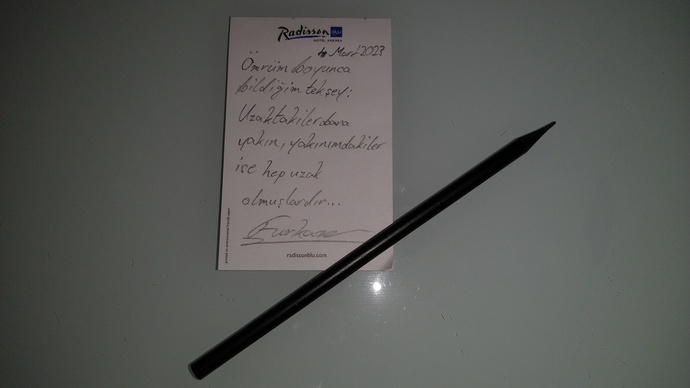 Radisson BLU
HOTEL, ANKARA
Mart 2023
Ömrüm boyunca
bildiğim tek şey:
Uzaktakiler bana
yakın, yakınımdakiler
ise hep uzak
olmuşlardır...
Furkan
radissonblu.com